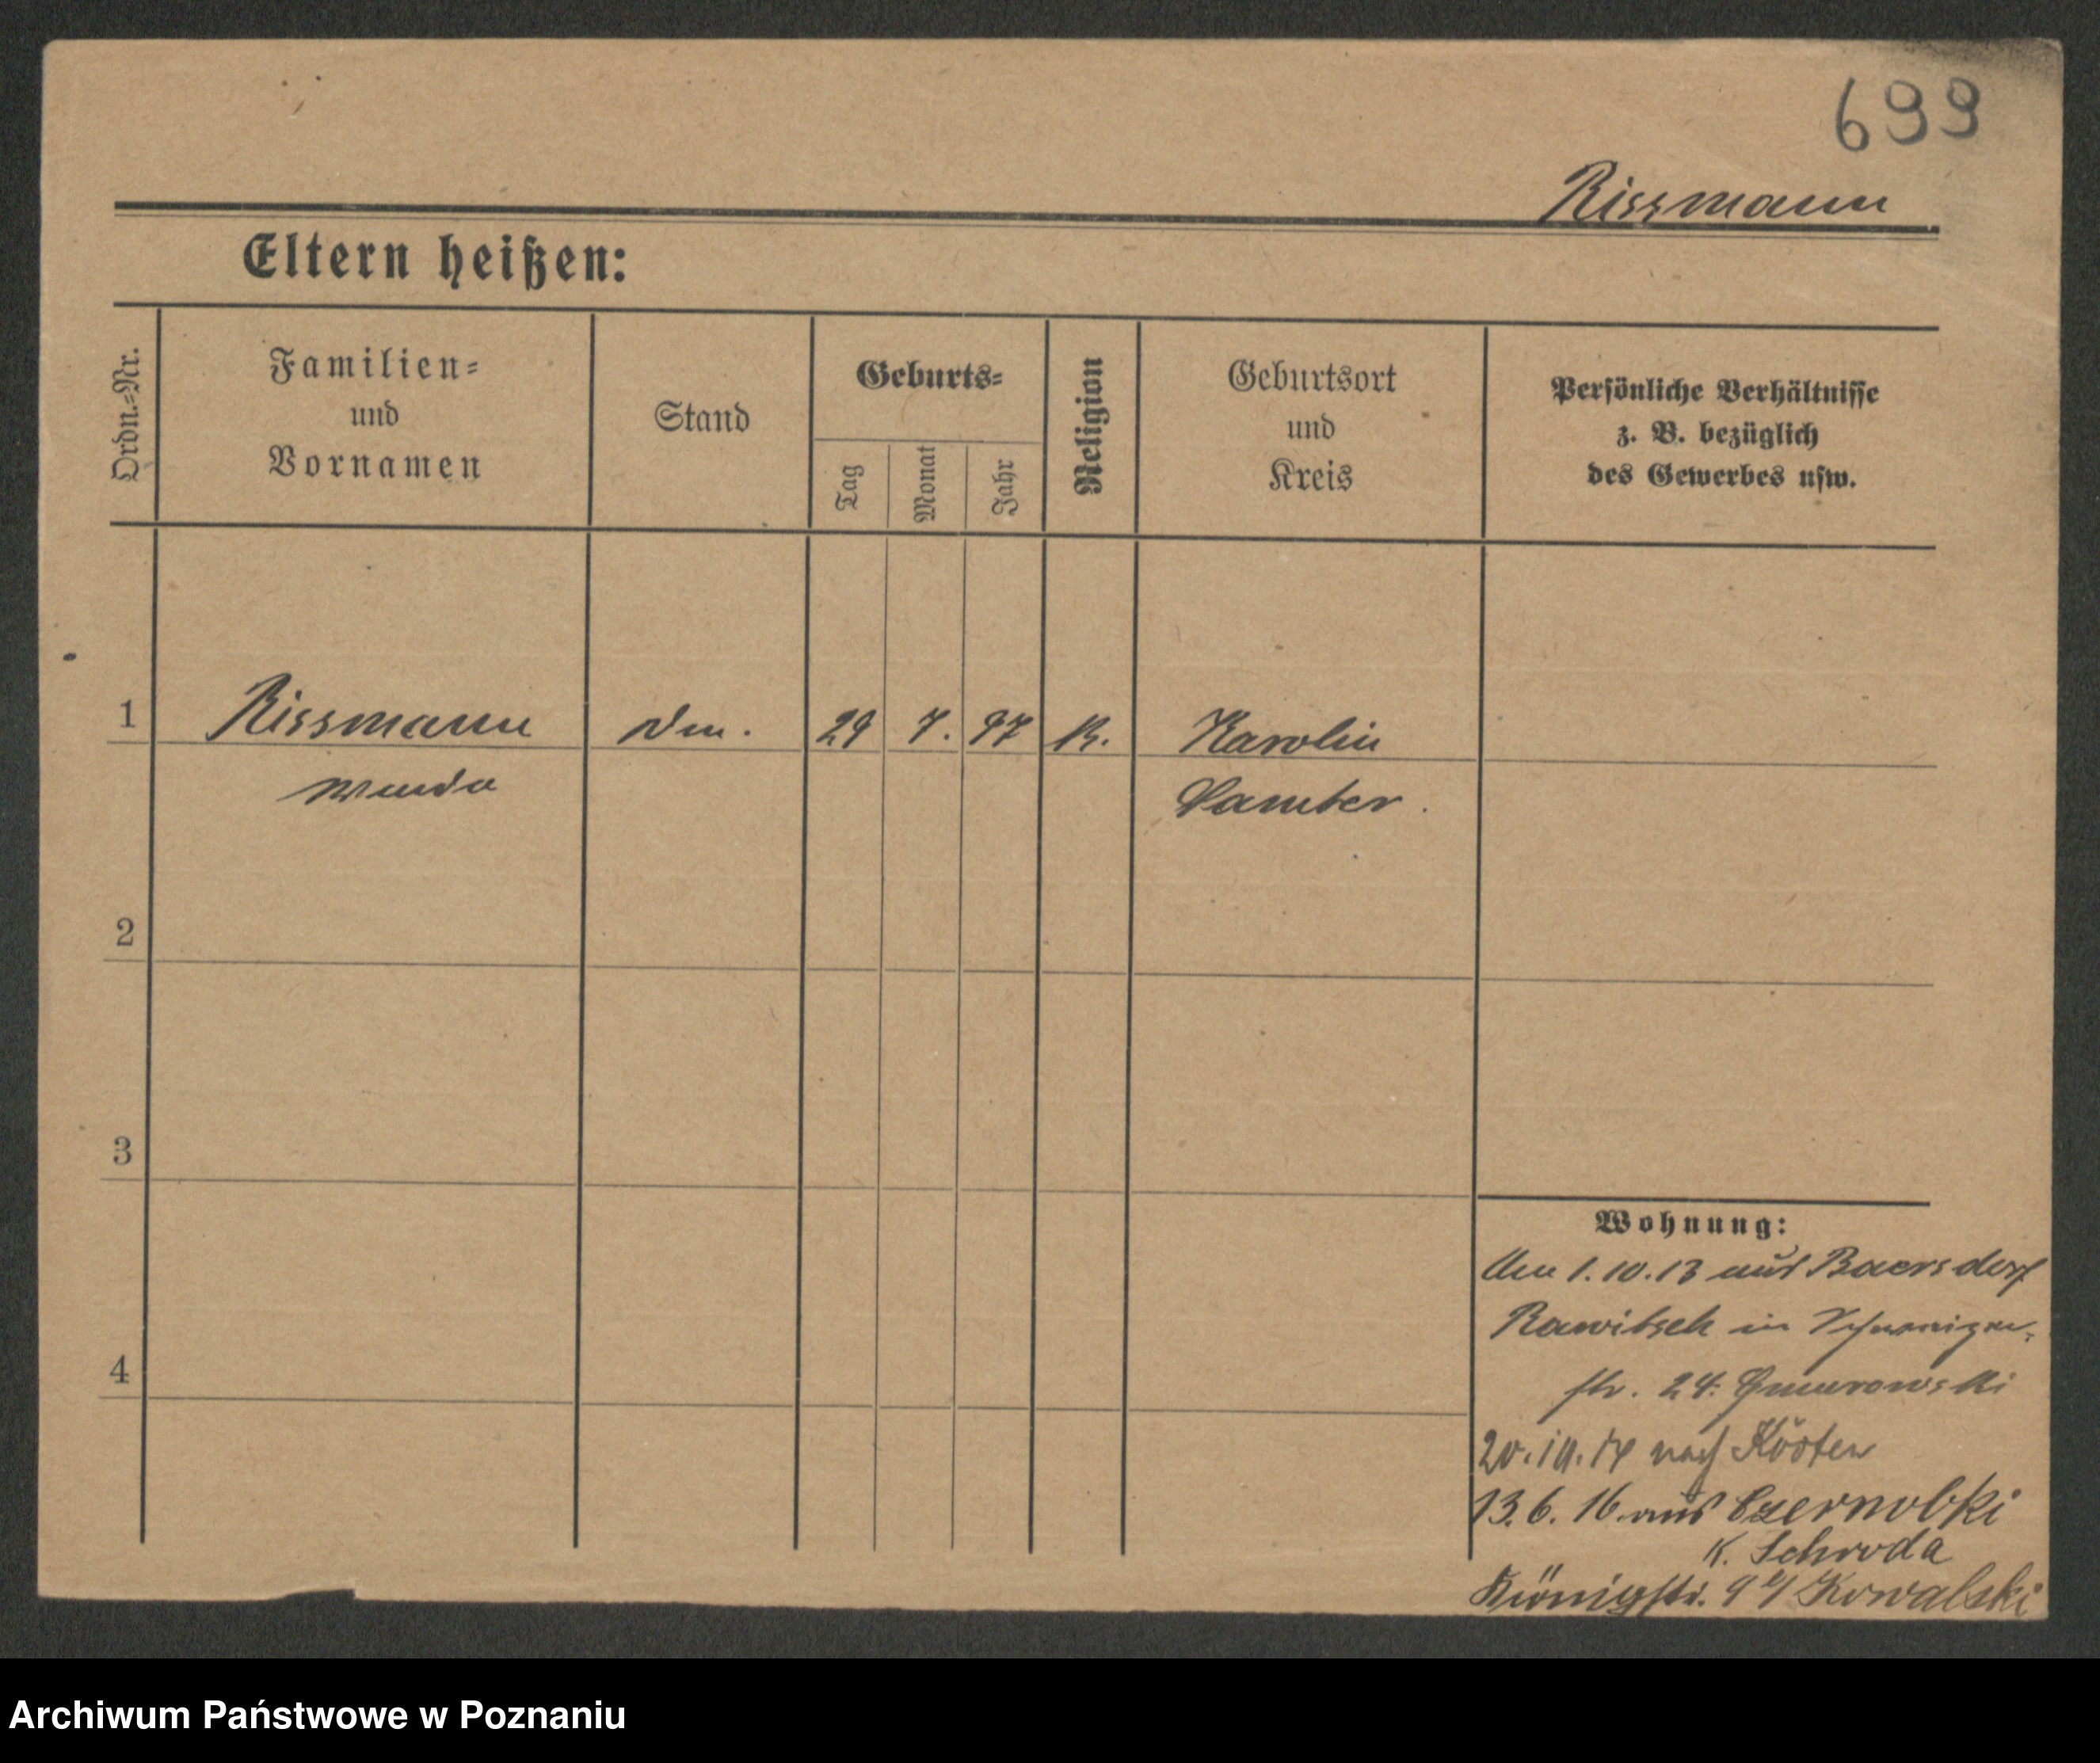 699
Rissmann
Eltern heißen:
Ordn.-Nr.
Familien-
und
Vornamen
Stand
Geburts-
Tag
Monat
Jahr
Religion
Geburtsort
und
Kreis
Persönliche Verhältnisse
z. B. bezüglich
des Gewerbes usw.
1 Rissmann 29 7. 97 K. Karolin
Wanda Samter.
2
3
4
Wohnung:
Am 1.10.13 aus Baersdorf
Rawitsch in
str. 24: Gmurowski
nach Kosten
13.6.16 aus Czernotki
K. Schroda
Königstr. 9 b/ Kowalski
Archiwum Państwowe w Poznaniu